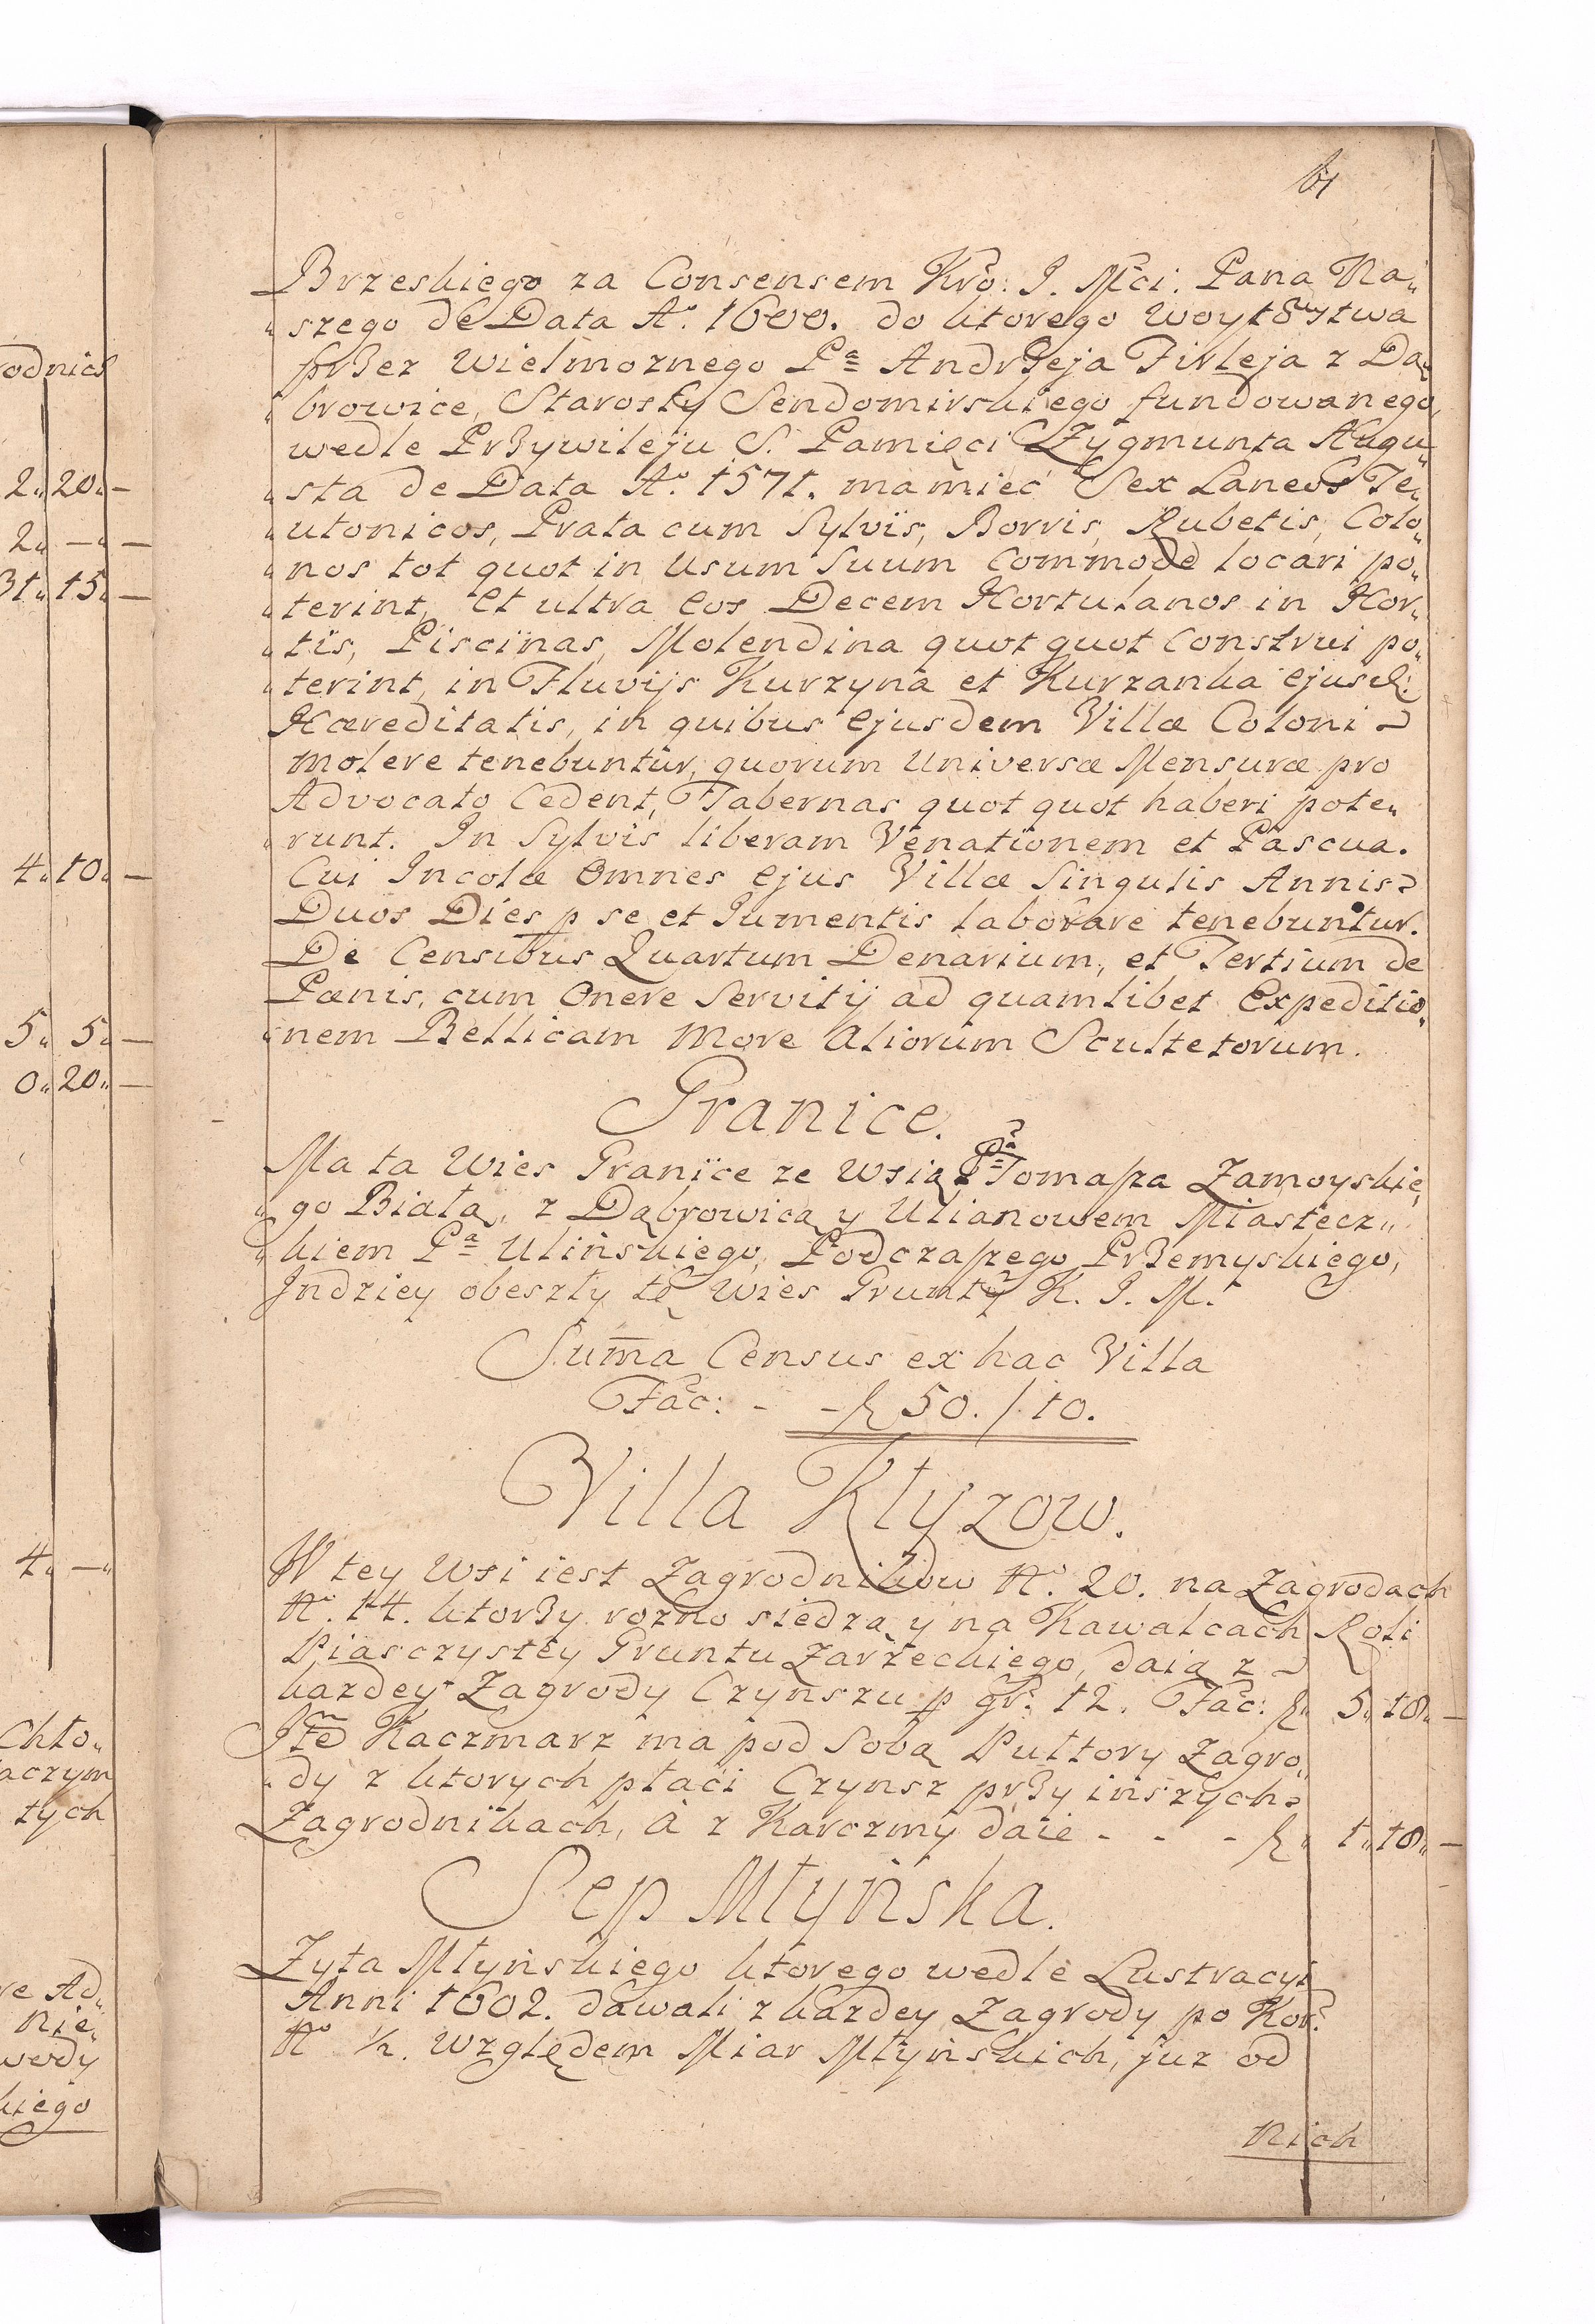 61
Brzeskiego za Consensem Kro: J. Mci. Pana Na„
„szego de Data Aº. 1600. do ktorego woytowstwa
przez wielmoznego Pª Andrzeja Firleja z Dą„
„browice, Starosty Sendomirskiego fundowanego,
wedle Przywileju S. Pamięci Zygmunta Augu„
„sta de Data Aº. 1571. ma mieć Sex Laneos Te„
„utonicos, Prata cum Sylvis, Borris, Rubetis, Colo„
„nos tot quot in Usum Suum Commode locari po„
„terint, et ultra eos Decem Hortulanos in Hor„
„tis, Piscinas, Molendina quot quot Construi po„
„terint, in Fluvijs Kurzyna et Kurzanka ejusd:
Hæreditatis, in quibus ejusdem Villæ Coloni
molere tenebuntur, quorum Universæ Mensuræ pro
Advocato Cedent, Tabernas quot quot haberi pote„
„runt. In Sylvis liberam Venationem et Pascua.
Cui Incolæ Omnes ejus Villæ Singulis Annis
Duos Dies p se et Jumentis laborare tenebuntur.
De Censibus Quartum Denarium, et Tertium de
Pœnis, cum Onere Servitij ad quamlibet Expeditio„
„nem Bellicam More Aliorum Scultetorum.
Granice.
Ma ta Wies Granice ze wsią Pª Tomasza Zamoyskie„
„go Białą, z Dąbrowicą y Ulianowem Miastecz„
„kiem Pª Ulińskiego, Podczaszego Przemyskiego,
Jndziey obeszły tę wies Grunty K. J. M.
Suma Census ex hac Villa
Fac: - - f 50. / 10.
Villa Kłyzow.
W tey wsi iest Zagrodnikow Nº. 20. na Zagrodach
Nº. 14. ktorzy rozno siedzą y na Kawalcach Roli
Piasczystey Gruntu Zarzeckiego, daią z
kazdey Zagrody Czynszu p gr. 12. Fac: f„ 5„ 18„ —
Jtem Kaczmarz ma pod Sobą Puttory Zagro„
„dy z ktorych płaci Czynsz przy inszych
Zagrodnikach, à z Karczmy daie - - - f„ 1„ 18„ —
Sep Młyńska.
Zyta Młyńskiego ktorego wedle Lustracyi
Anni 1602. dawali z kazdey Zagrody po Kor:
Nº ½. Względem Miar Młyńskich, juz od
nich